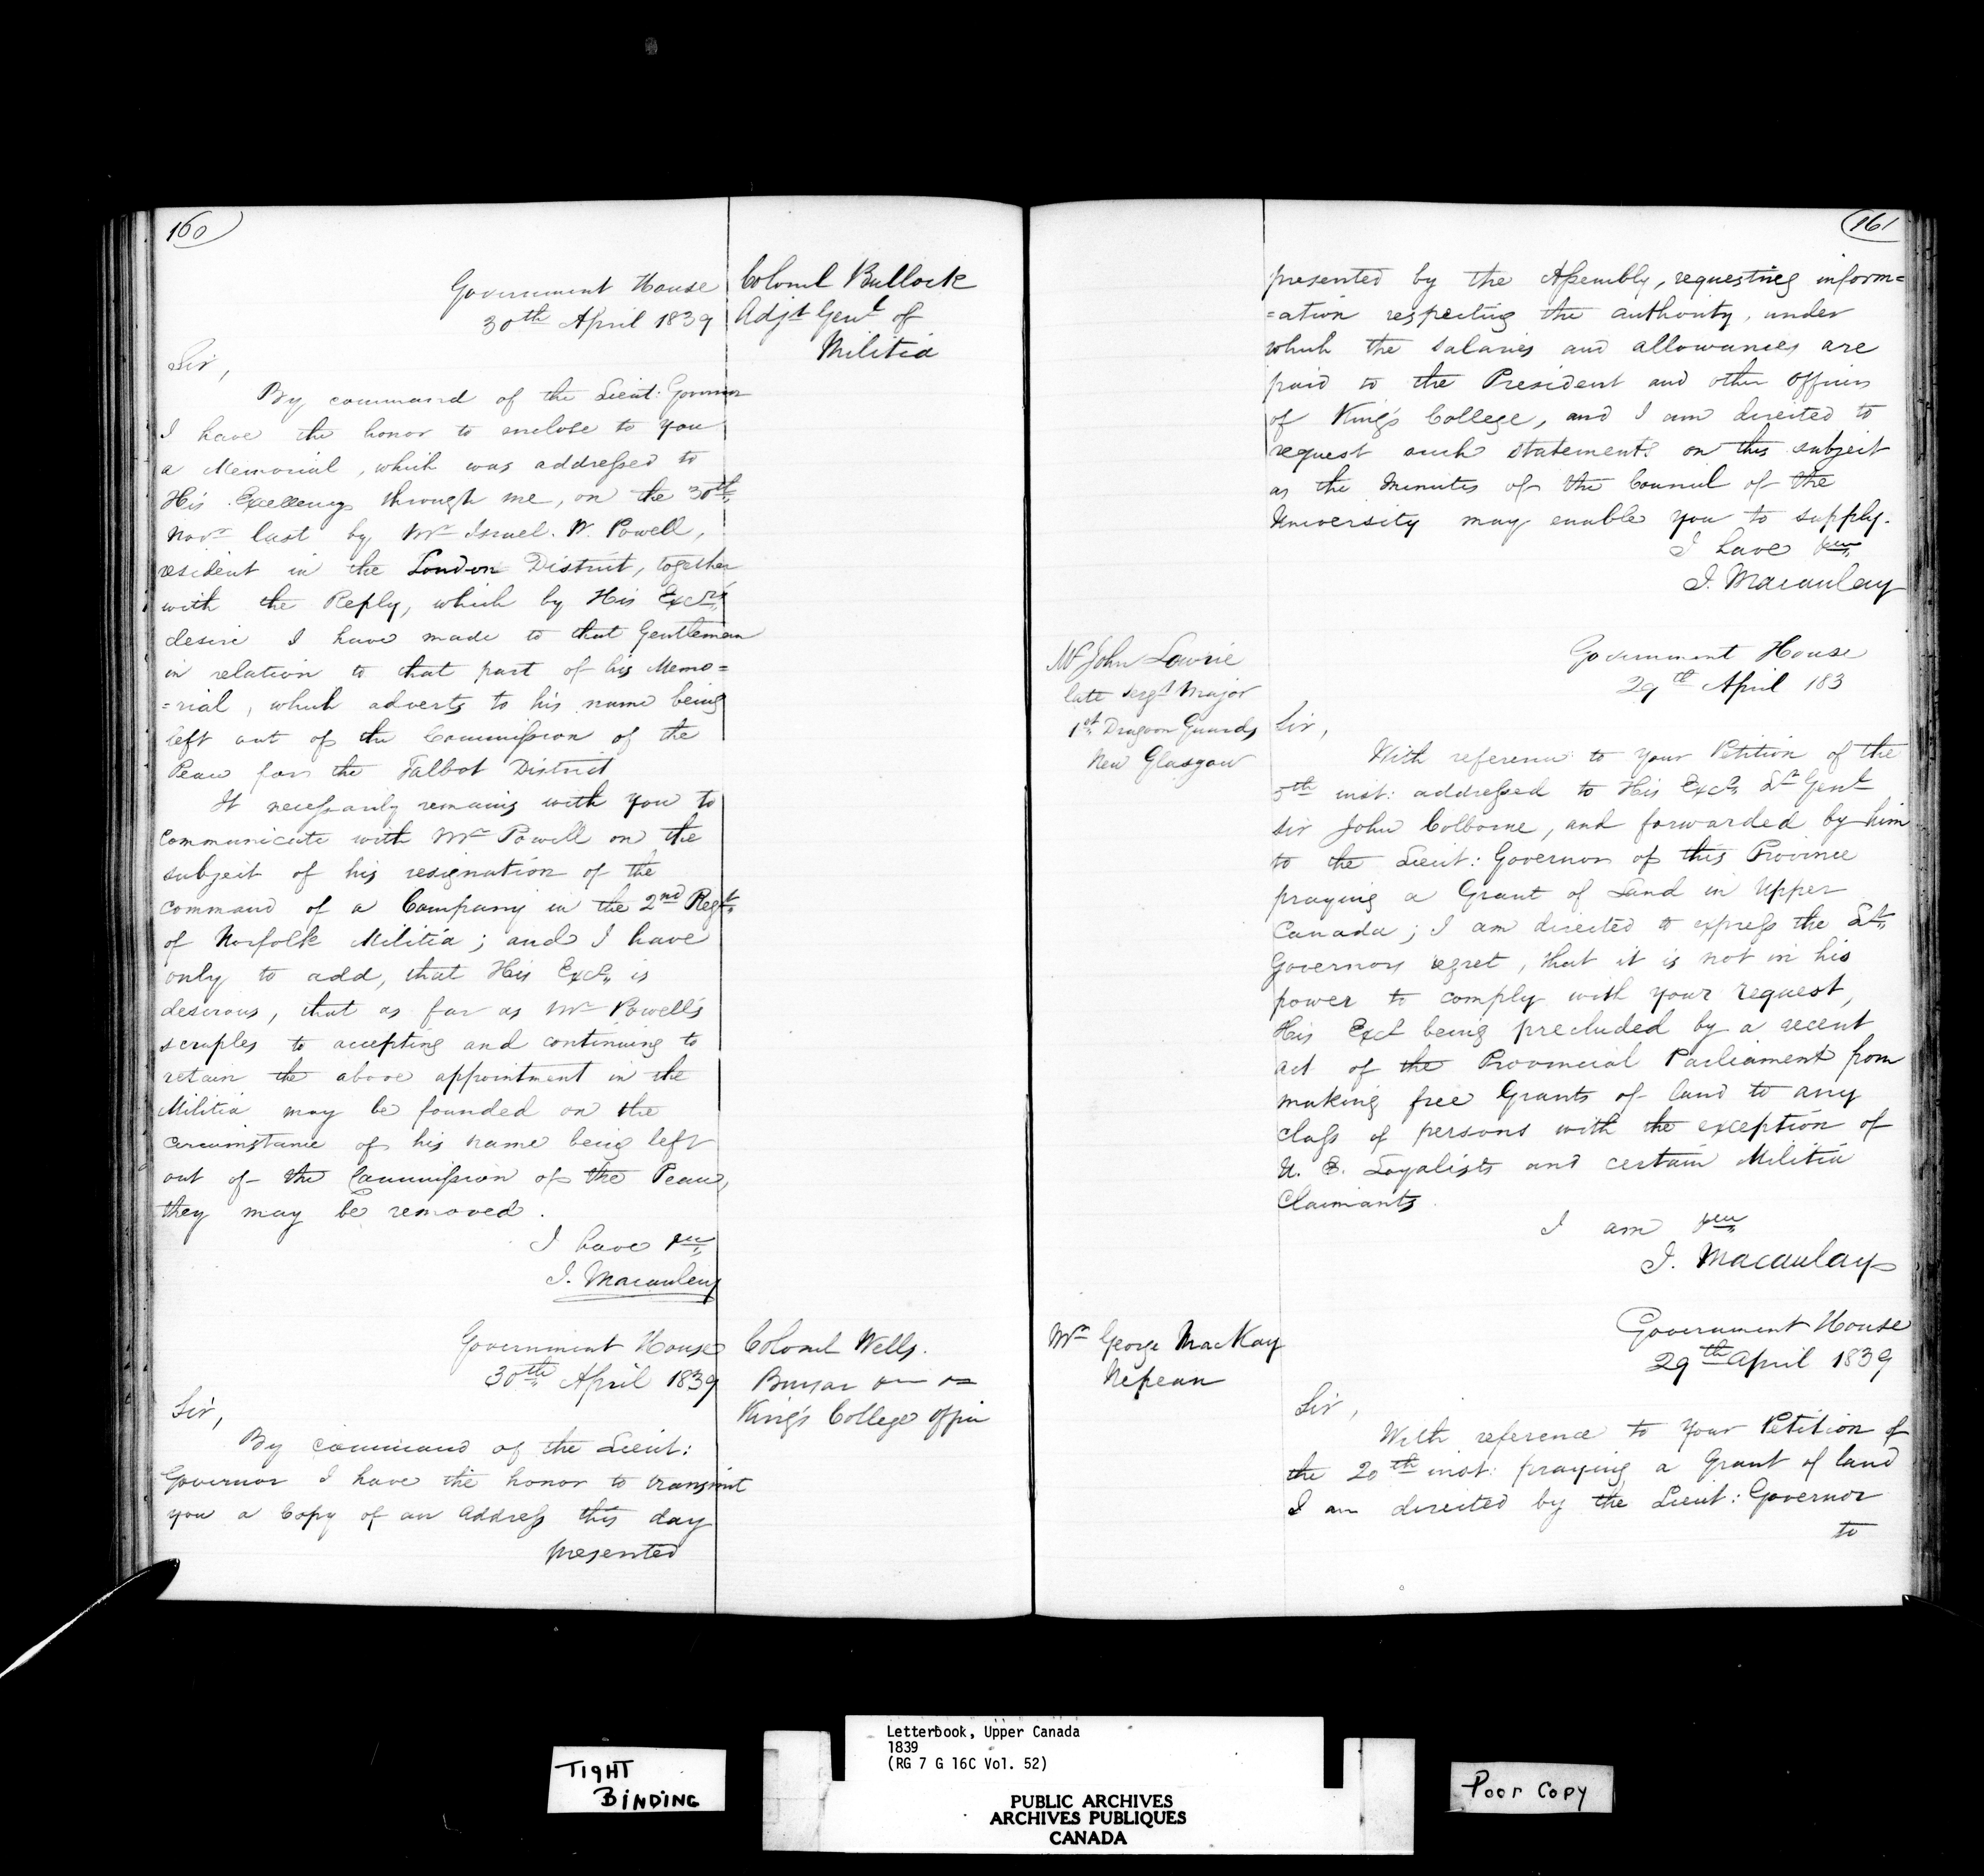 160
Government House
30th April 1839
Colonel Bullock
Adjt Genl of
Militia
Sir,
By command of the Lieut: Governor
I have the honor to enclose to you
a Memorial, which was addressed to
His Excellency through me, on the 30th
Novr last by Mr Israel. W. Powell,
resident in the London District, together
with the Reply, which by His Excys
desire I have made to that Gentleman
in relation to that part of his Memo=
=rial, which adverts to his name being
left out of the Commission of the
Peace for the Talbot District
It necessarily remains with you to
communicate with Mr Powell on the
subject of his resignation of the
command of a Company in the 2nd Regt
of Norfolk Militia; and I have
only to add, that His Excy is
desirous, that as far as Mr Powell's
scruples to accepting and continuing to
retain the above appointment in the
Militia may be founded on the
circumstance of his name being left
out of the Commission of the Peace,
they may be removed.
I have &c
J. Macaulay
Government House
30th April 1839
Colonel Wells.
Bursar
King's College Office
Sir,
By command of the Lieut:
Governor I have the honor to transmit
you a Copy of an Address this day
presented
161
presented by the Assembly, requesting inform=
=ation respecting the authority, under
which the salaries and allowances are
paid to the President and other Officers
of King's College, and I am directed to
request such statements on this subject
as the Minutes of the Council of the
University may enable you to supply.
I have &c
J. Macaulay
Mr John Lowrie
late Sergt Major
1st Dragoon Guards
New Glasgow
Government House
29th April 183
Sir,
With reference to your Petition of the
5th inst: addressed to His Excy Lt Genl
Sir John Colborne, and forwarded by him
to the Lieut: Governor of this Province
praying a Grant of Land in Upper
Canada; I am directed to express the Lt
Governors regret, that it is not in his
power to comply with your request,
His Excy being precluded by a recent
act of the Provincial Parliament from
making free Grants of land to any
class of persons with the exception of
U. E. Loyalists and certain Militia
Claimants.
I am &c
J. Macaulay
Mr George MacKay
Nepean
Government House
29th April 1839
Sir,
With reference to your Petition of
the 20th inst: praying a Grant of land
I am directed by the Lieut: Governor
to
TIGHT
BINDING
Letterbook, Upper Canada
1839
(RG 7 G 16C Vol. 52)
PUBLIC ARCHIVES
ARCHIVES PUBLIQUES
CANADA
Poor Copy